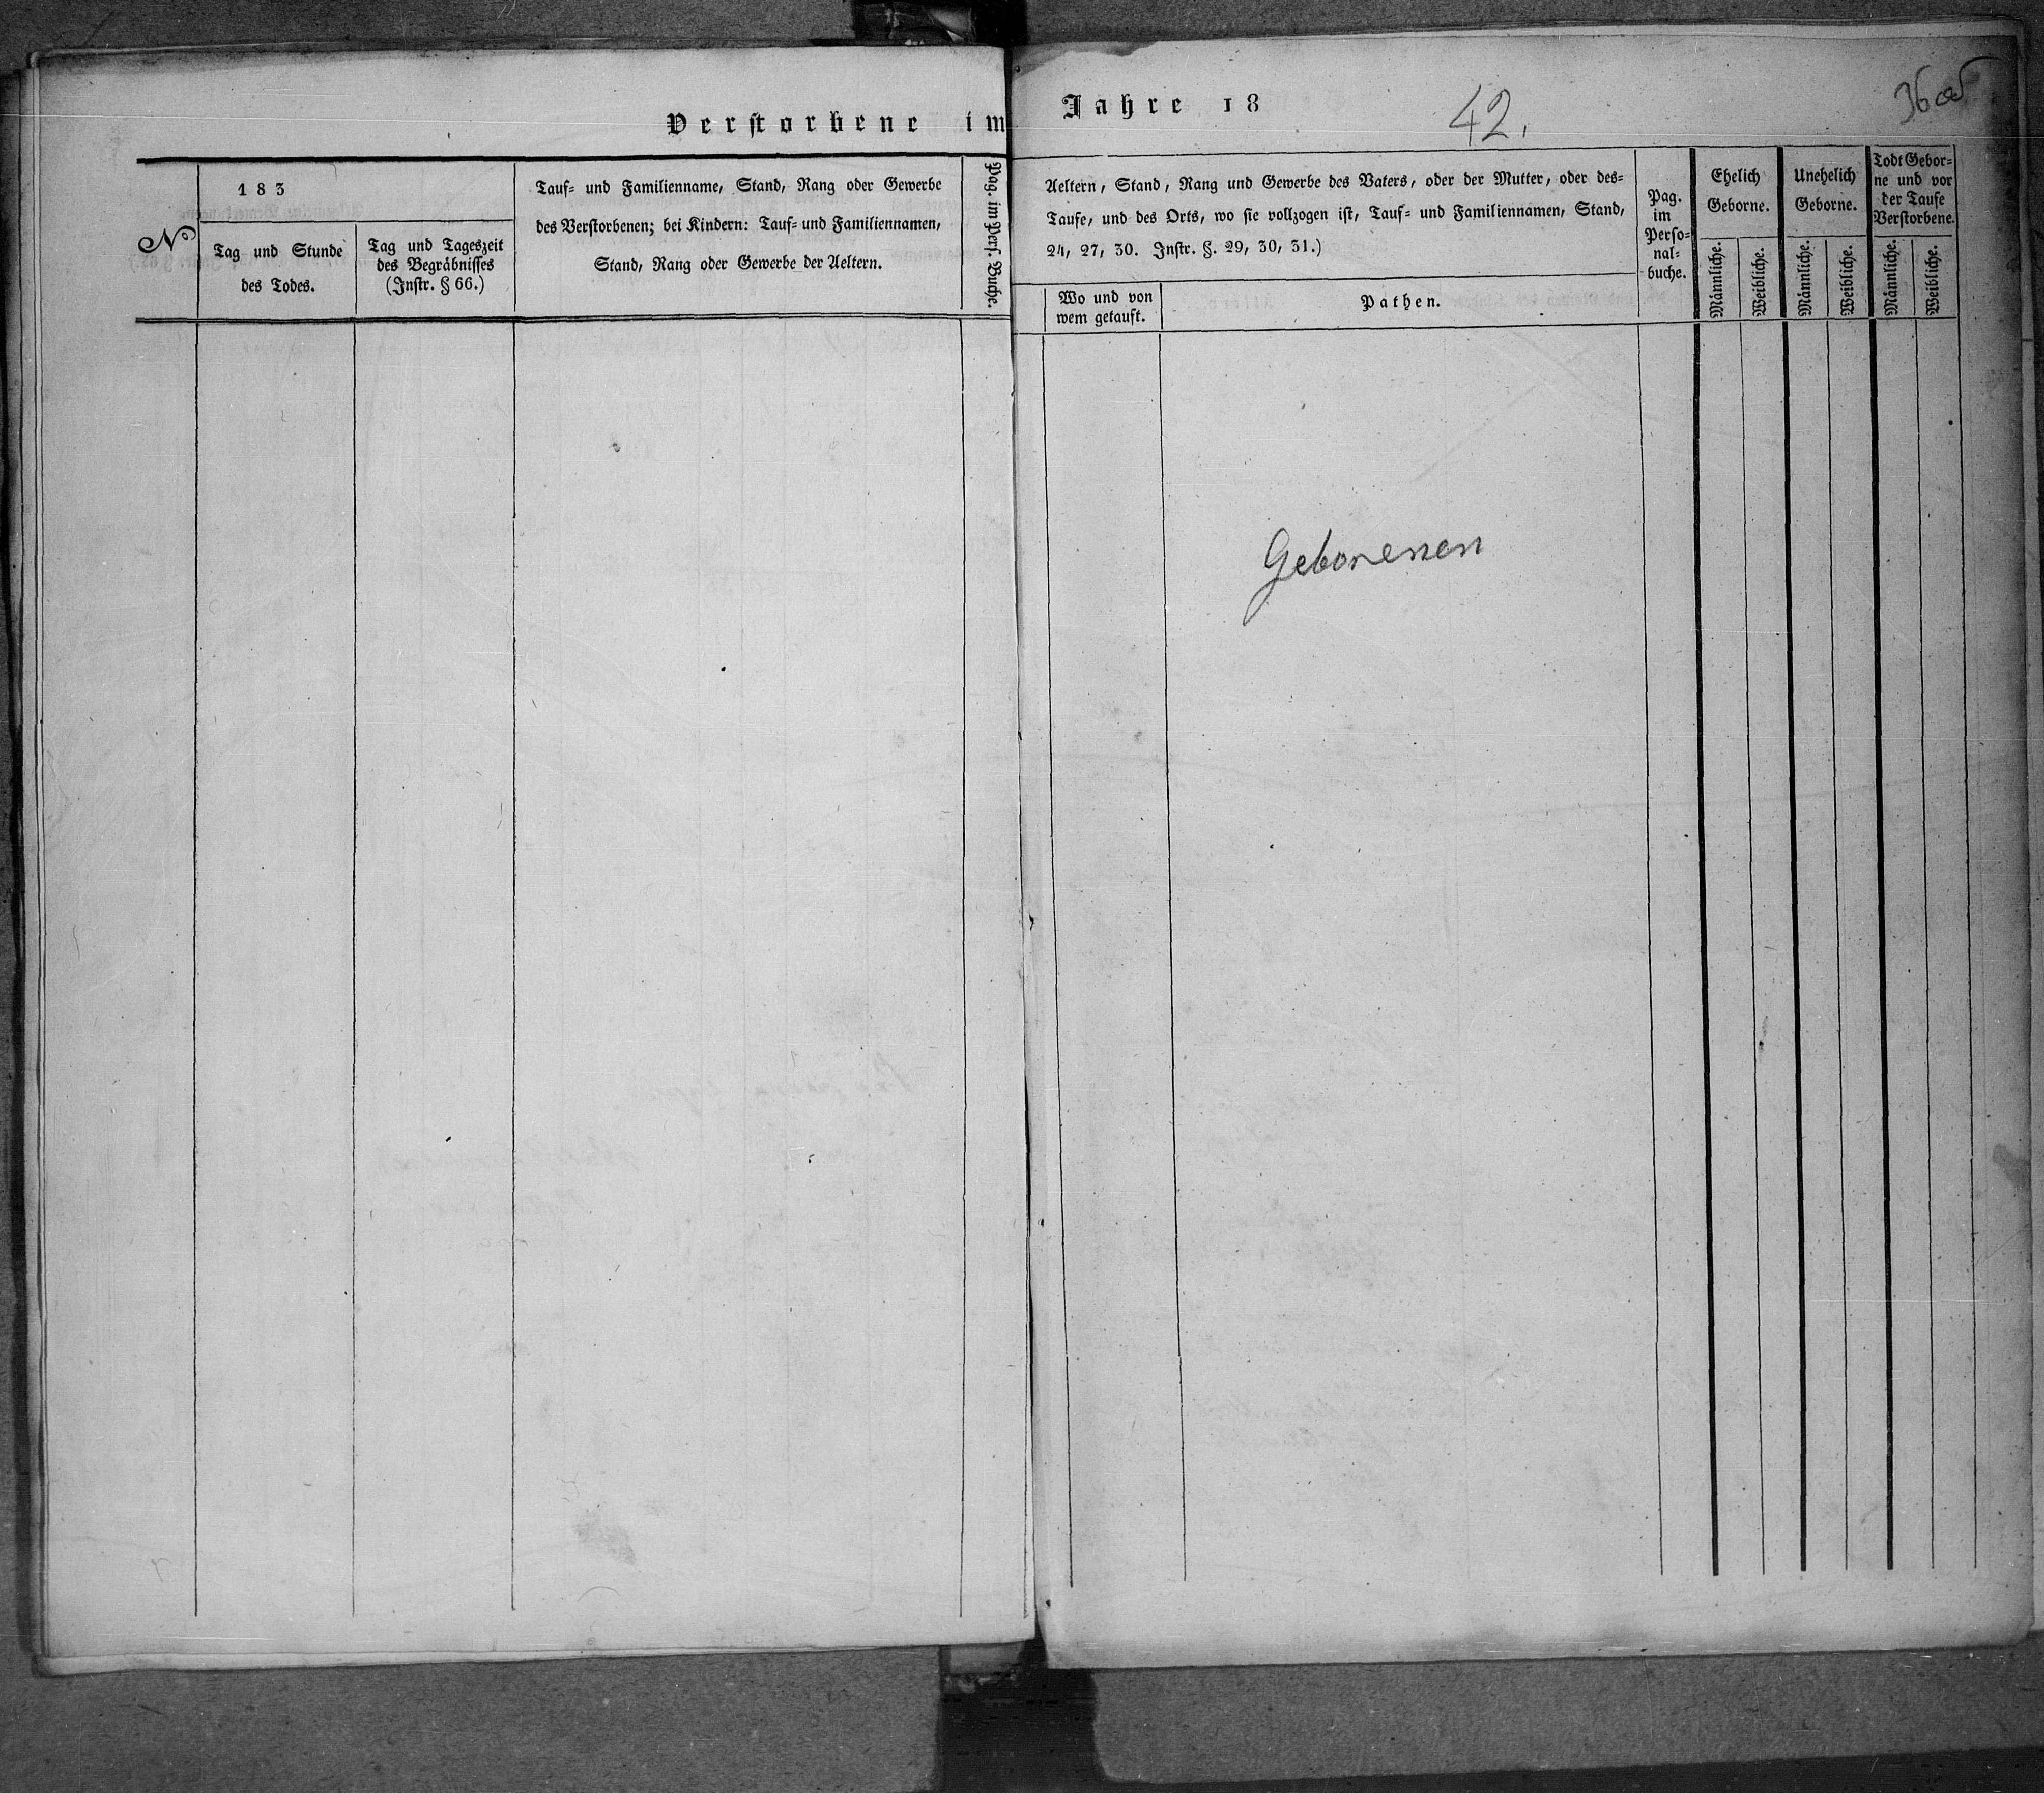 Verstorbene im
№
183
Tag und Stunde
des Todes.
Tag und Tageszeit
des Begräbnisses
(Instr. § 66.)
Tauf- und Familienname, Stand, Rang oder Gewerbe
des Verstorbenen; bei Kindern: Tauf- und Familiennamen,
Stand, Rang oder Gewerbe der Aeltern.
Pag. im Pers. Buche.
Jahre 18
42.
Aeltern, Stand, Rang und Gewerbe des Vaters, oder der Mutter, oder des-
Taufe, und des Orts, wo sie vollzogen ist, Tauf- und Familiennamen, Stand,
24, 27, 30. Instr. §. 29, 30, 31.)
Wo und von
wem getauft.
Pathen.
Pag.
im
Perso-
nal-
buche.
Ehelich
Geborne.
Männliche.
Weibliche.
Unehelich
Geborne.
Männliche.
Weibliche.
Todt Gebor-
ne und vor
der Taufe
Verstorbene.
Männliche.
Weibliche.
Geborenen